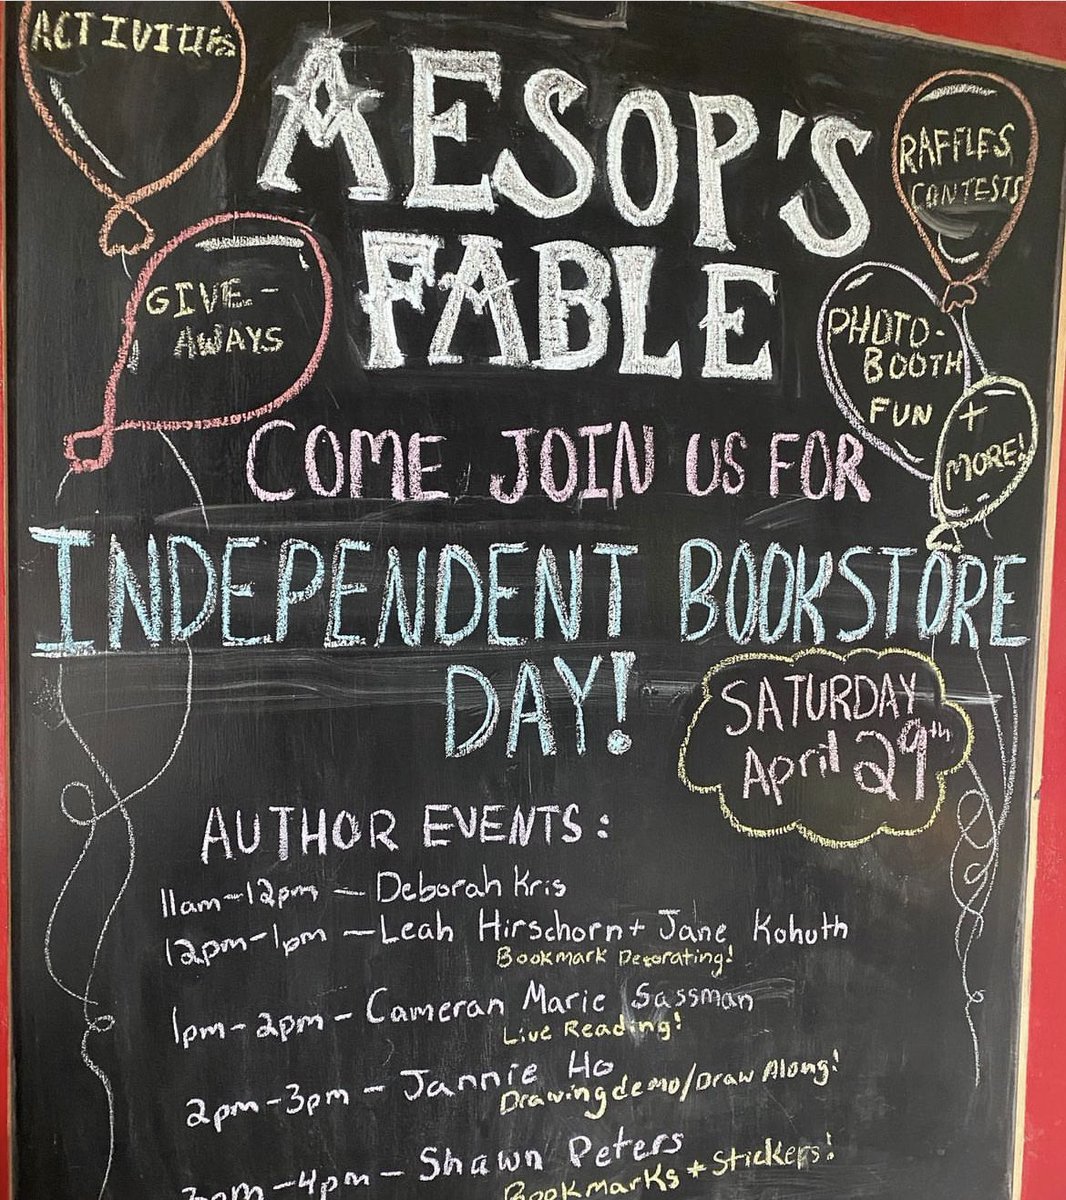 ACTIVITIES
AESOP'S
FABLE
RAFFLES
CONTESTS
GIVE-
AWAYS
PHOTO-
BOOTH
FUN
+
MORE!
COME JOIN US FOR
INDEPENDENT BOOKSTORE
DAY!
SATURDAY
April 29th
AUTHOR EVENTS:
11am-12pm - Deborah Kris
12pm-1pm - Leah Hirschorn + Jane Kohuth
Bookmark Decorating!
1pm-2pm - Cameran Marie Sassman
Live Reading!
2pm-3pm - Jannie Ho
Drawing demo/Draw Along!
3pm-4pm - Shawn Peters
Bookmarks + Stickers!